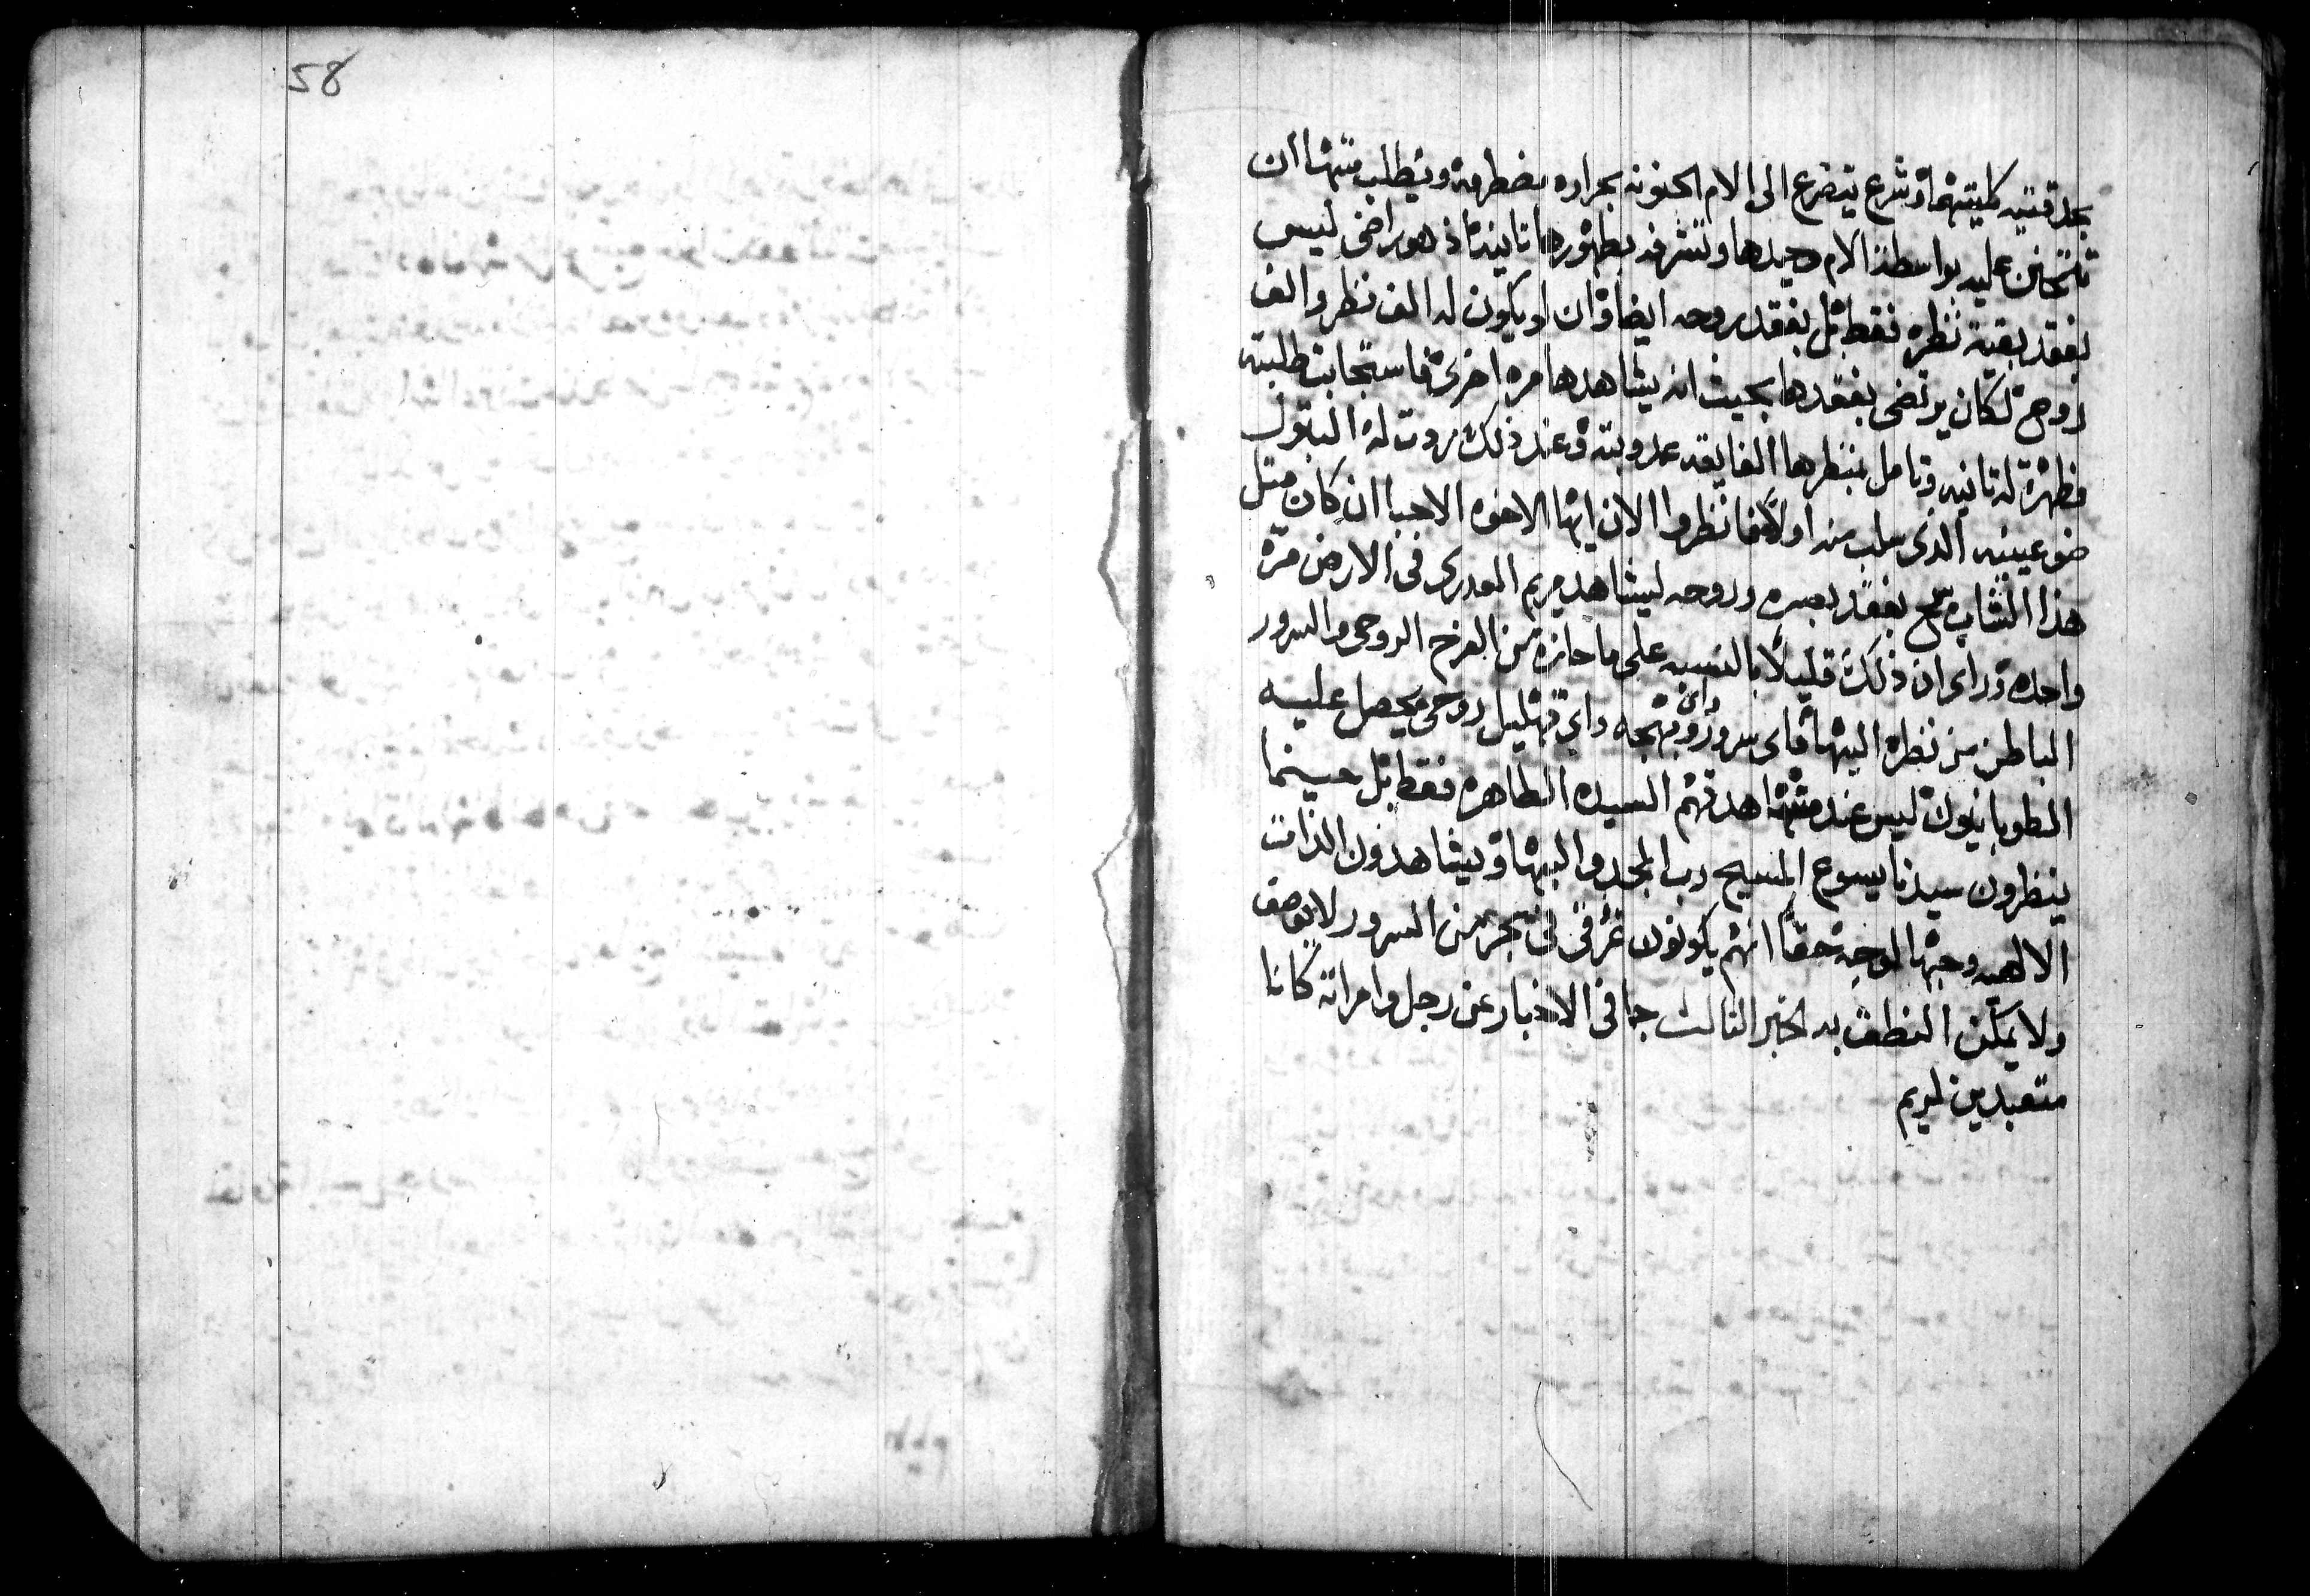 58
بحدقتيه كليتهما وشرع يتضرع الى الام الحنونه بحراره مضطرمه ويطلب منها ان
تتحنن عليه بواسطة الام وحيدها وتشرفه بظهورها تانية اذ هو راضى ليس
بفقد بقية نظره فقط بل بفقد روحه ايضا وان لو يكون له الف نظر والف
روح لكان يرتضى بفقدها بحيث انه يشاهدها مره اخرى فاستجابت طلبته
فظهرة له تانيه وتامل بمنظرها الفايقه عدوبته وعند ذلك ردت له البتول
ضو عينيه الذى سلب منه اولاً فانظروا الان ايها الاخوه الاحبا ان كان متل
هذا الشاب سمح بفقد بصره وروحه ليشاهد مريم العدرى فى الارض مرة
واحده وراى ان ذلك قليلاً بالنسبه على ما حازه من الفرح الروحى والسرور
الباطن من نظره اليها فاى سرور واى بهجه واى تهليل روحى يحصل عليه
الطوبانيون ليس عند مشاهدتهم السيده الطاهره فقط بل حينما
ينظرون سيدنا يسوع المسيح رب المجد والبها ويشاهدون الذات
الالهيه وجها لوجه حقاً انهم يكونون غرقى فى بحر من السرور لا يوصف
ولا يمكن النطق به الخبر التالت جا فى الاخبار عن رجل وامراته كانا
متعبدين لمريم